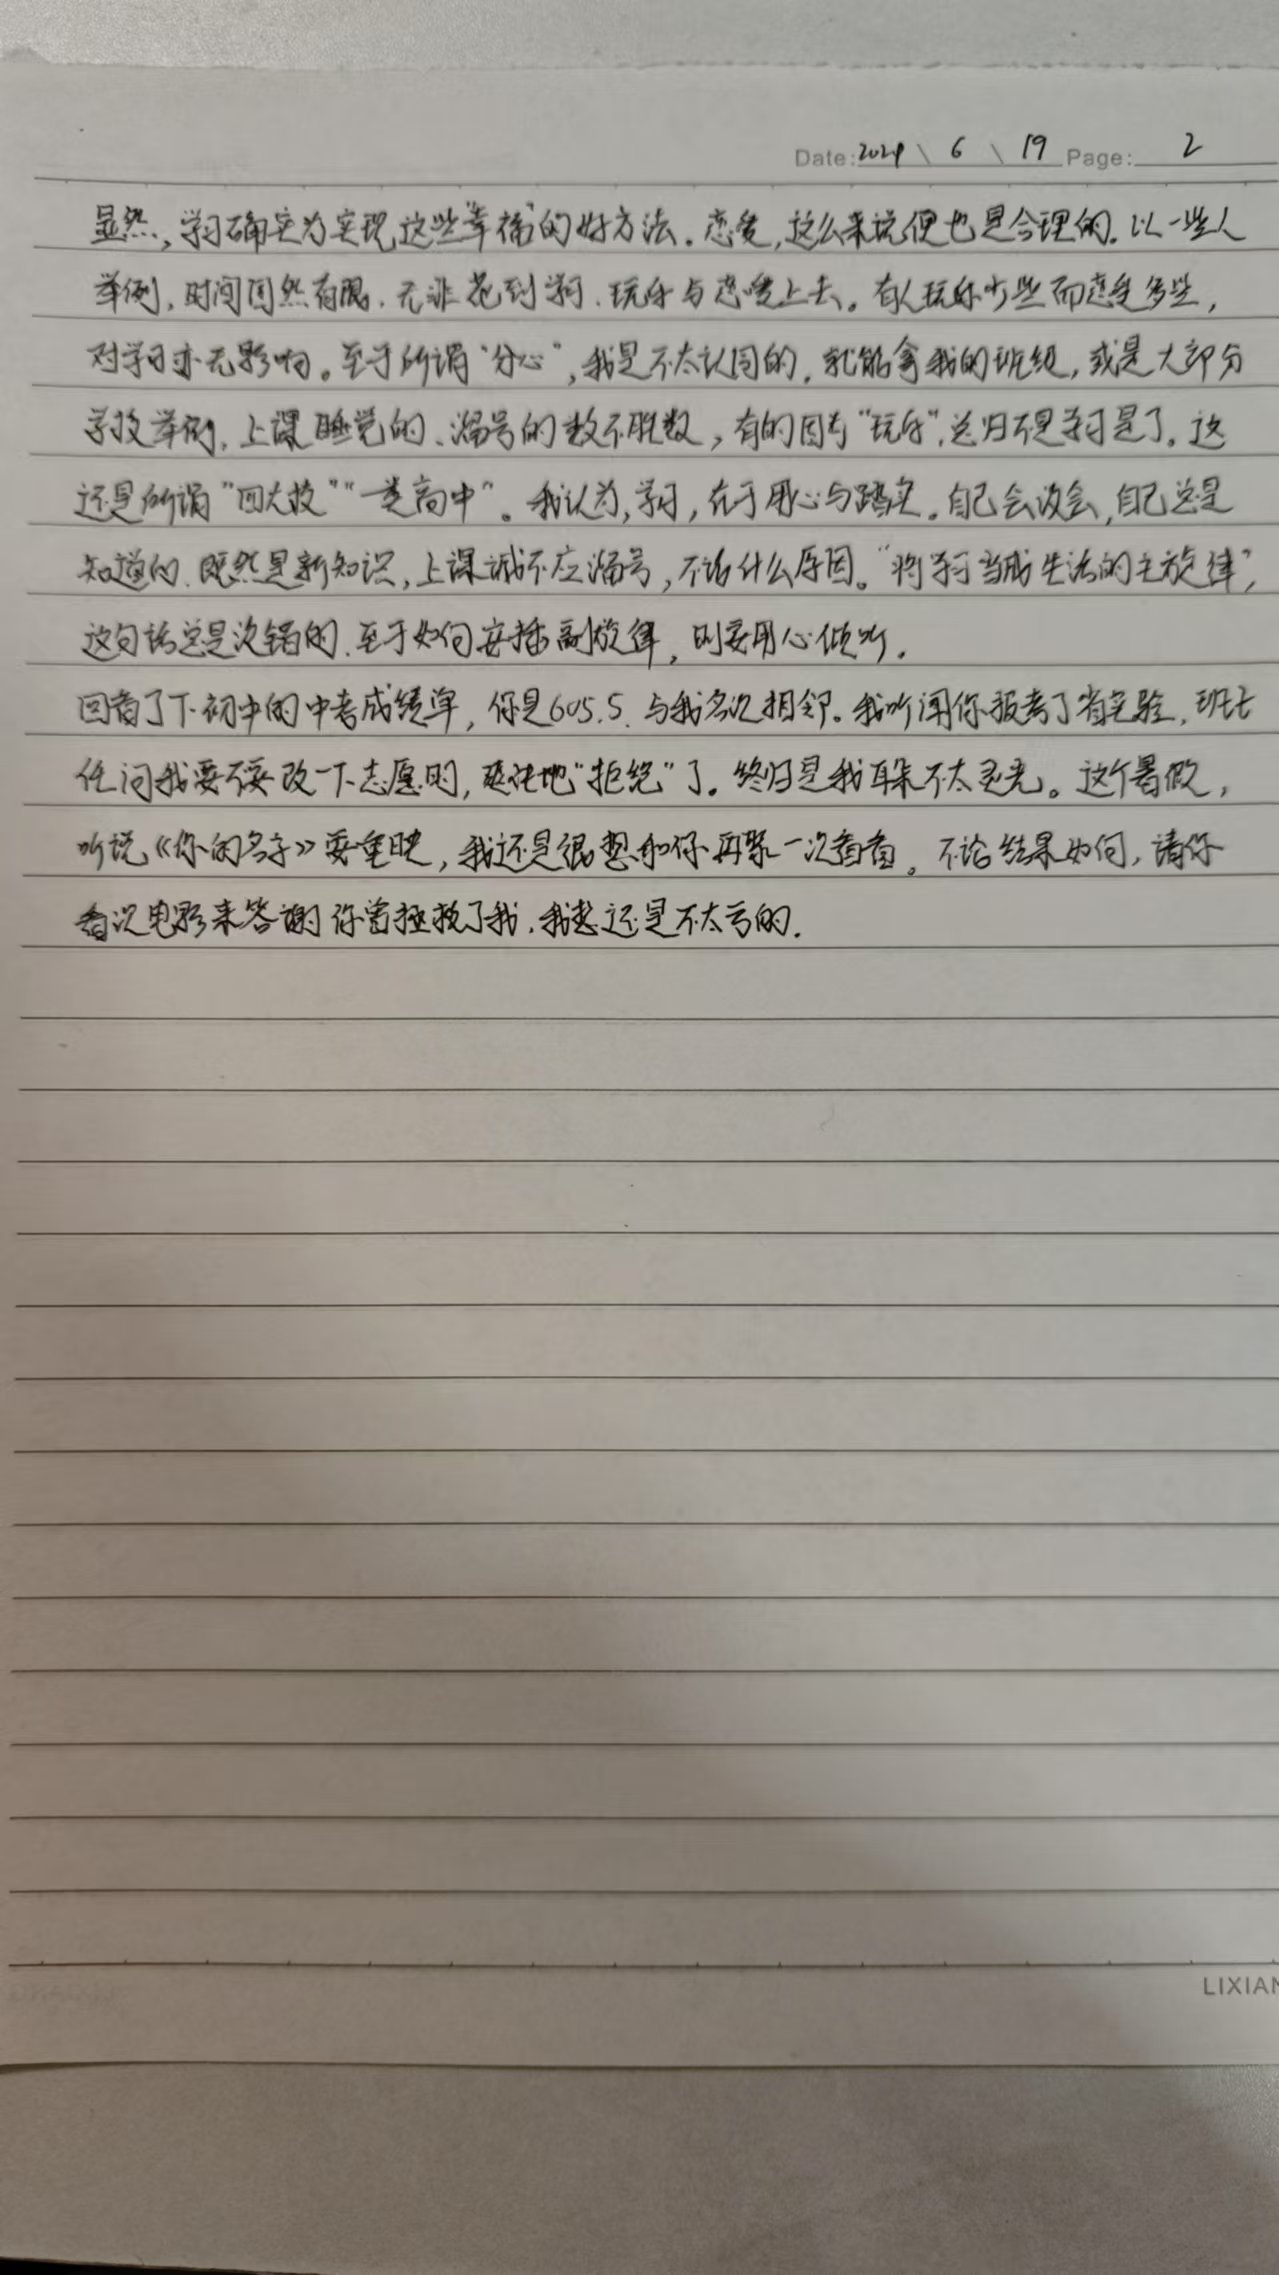 Date: 2024 \ 6 \ 19 Page: 2
显然，学习确实为实现这些“幸福”的好方法。恋爱，这么来说便也是合理的。以一些人
举例，时间固然有限，无非花到学习、玩乐与恋爱上去。有人玩乐少些而恋爱多些，
对学习亦无影响。至于所谓“分心”，我是不太认同的，就能拿我的班级，或是大部分
学校举例，上课睡觉的、溜号的数不胜数，有的因为“玩乐”，总归不是学习是了。这
还是所谓“四大校”“一类高中”。我认为，学习，在于用心与踏实。自己会没会，自己总是
知道的，既然是新知识，上课诚不应溜号，不论什么原因。“将学习当成生活的主旋律”，
这句话总是没错的，至于如何安插副旋律，则要用心倾听。
回看了下初中的中考成绩单，你是605.5，与我名次相邻。我听闻你报考了省实验，班主
任问我要不要改一下志愿时，还地“拒绝”了。终归是我耳朵不太灵光。这个暑假，
听说《你的名字》要重映，我还是很想和你再聚一次看看。不论结果如何，请你
看次电影来答谢你曾拯救了我，我想还是不太亏的。
LIXIAN